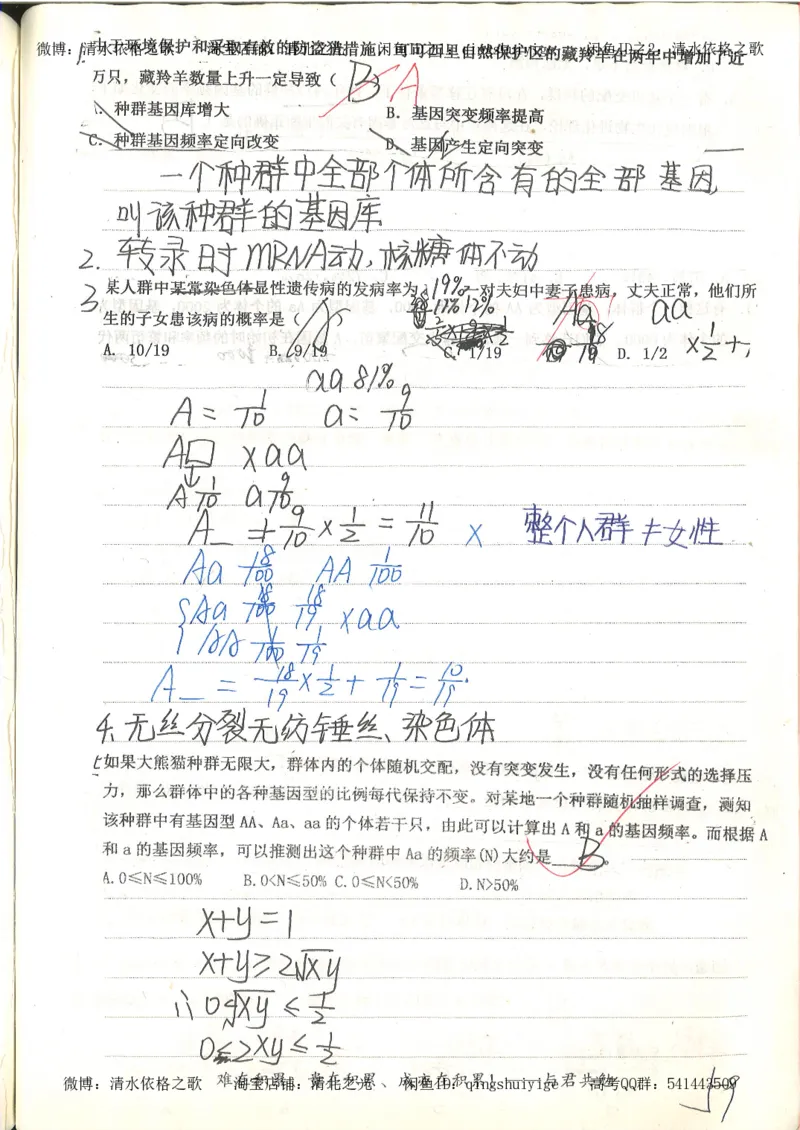 微博：清水依格之歌
闲鱼ID之2：清水依格之歌
1. 由于环境保护和采取有效的防盗猎措施，可可西里自然保护区的藏羚羊在两年中增加了近
万只，藏羚羊数量上升一定导致（ B ）A
A. 种群基因库增大 B. 基因突变频率提高
C. 种群基因频率定向改变 D. 基因产生定向突变
一个种群中全部个体所含有的全部基因
叫该种群的基因库
2. 转录时mRNA动，核糖体不动
3 某人群中某常染色体显性遗传病的发病率为19%，一对夫妇中妻子患病，丈夫正常，他们所
生的子女患该病的概率是（
Aa aa
A. 10/19 B. 9/19 C. 1/19 D. 1/2
aa 81%
A = 1/10 a = 9/10
A□ × aa
A 1/10 a 9/10
A_ + 9/10 × 1/2 = 11/10 × 整个人群≠女性
Aa 18/100 AA 1/100
{Aa 18/100 18/19 × aa
AA 1/100 1/19
A_ = 18/19 × 1/2 + 1/19 = 10/19.
4. 无丝分裂无纺锤丝、染色体
5 如果大熊猫种群无限大，群体内的个体随机交配，没有突变发生，没有任何形式的选择压
力，那么群体中的各种基因型的比例每代保持不变。对某地一个种群随机抽样调查，测知
该种群中有基因型AA、Aa、aa的个体若干只，由此可以计算出A和a的基因频率。而根据A
和a的基因频率，可以推测出这个种群中Aa的频率(N)大约是 B 。
A.0≤N≤100% B.0<N≤50% C.0≤N<50% D.N>50%
x+y=1
x+y≥2√xy
∴ 0≤√xy≤1/2
0≤2xy≤1/2
微博：清水依格之歌 淘宝店铺：清北之光 闲鱼ID：qingshuiyige 高考QQ群：541443509
难在积累、贵在积累、成亦在积累！ 与君共勉
59